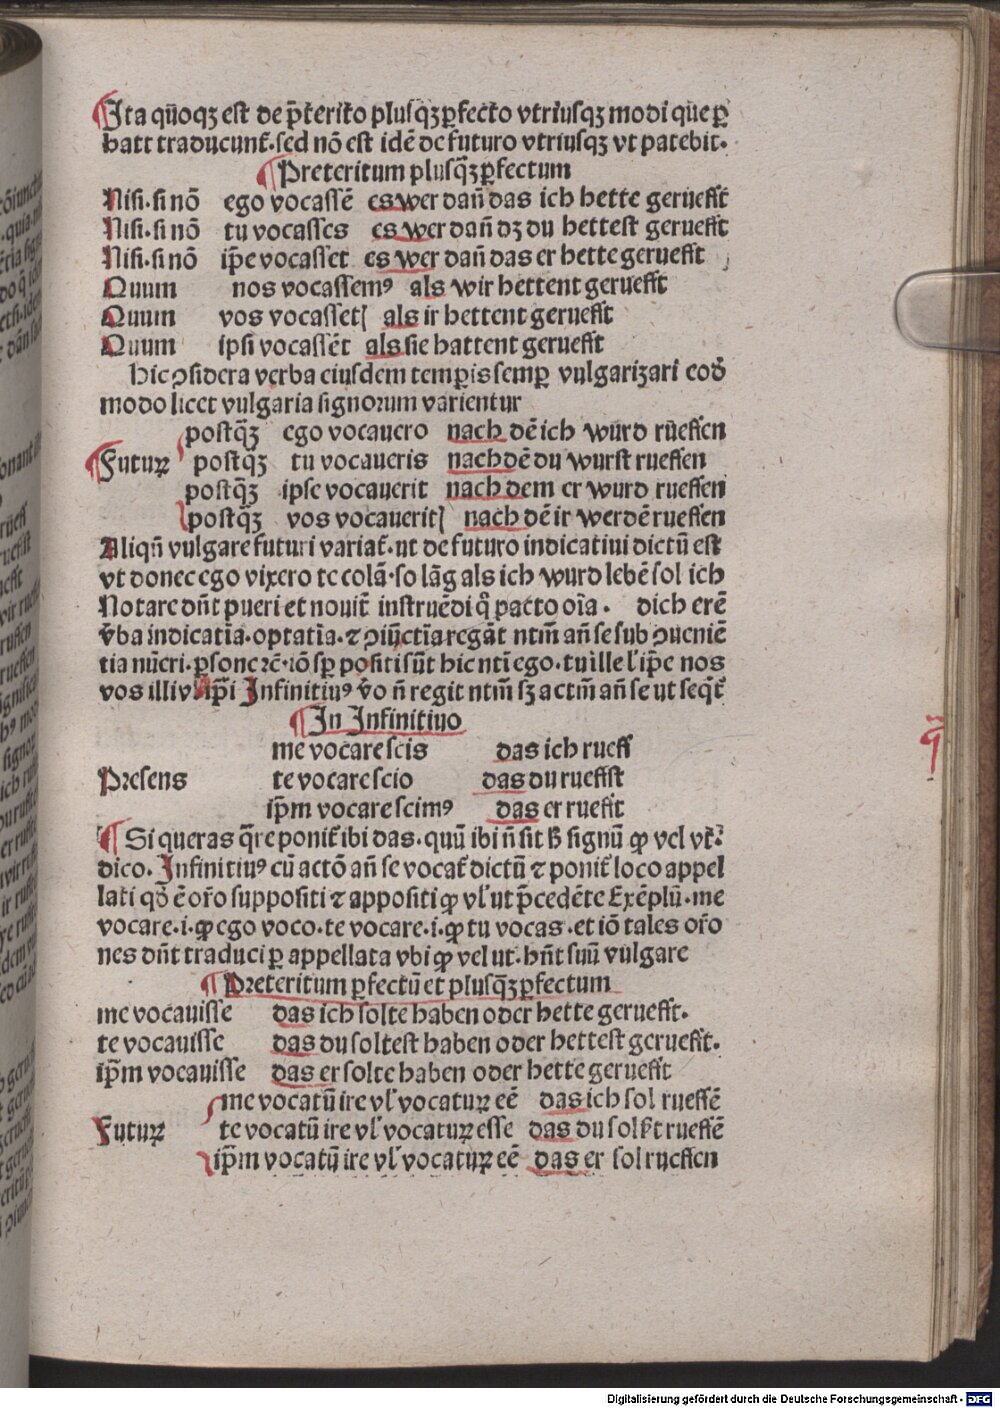 Ita qũoqꝫ est de p̃terito plusqꝫ ꝑfecto vtriusqꝫ modi que ꝑ
hatt traducunt̃. sed nõ est idẽ de futuro vtriusqꝫ vt patebit.
Preteritum plusq̃ꝫ ꝑfectum
Nisi. si nõ ego vocassẽ es wer dañ das ich hette gerüefft
Nisi. si nõ tu vocasses es wer dañ dꝫ du hettest geruefft
Nisi. si nõ ip̃e vocasset es wer dañ das er hette geruefft
Quum nos vocassemꝰ als wir hettent geruefft
Quum vos vocassetꝭ als ir hettent geruefft
Quum ipsi vocassẽt als sie hattent geruefft
Hic ꝯsidera verba eiusdem temꝑis semꝑ vulgarizari eod̃
modo licet vulgaria signoꝛum varientur
postq̃ꝫ ego vocauero nach dẽ ich würd rüeffen
Futuꝝ postq̃ꝫ tu vocaueris nach dẽ du wurst rueffen
postq̃ꝫ ipse vocauerit nach dem er wurd rueffen
postq̃ꝫ vos vocaueritꝭ nach dẽ ir werdẽ rueffen
Aliqñ vulgare futuri variat̃. ut de futuro indicatiui dictũ est
vt donec ego vixero te colã. so lãg als ich wurd lebẽ sol ich
Notare dñt pueri et nouit̃ instruẽdi q̃ pacto oĩa. dich erẽ
ṽba indicatĩa. optatĩa. ⁊ ꝯiũctĩa regãt ntm̃ añ se sub ꝯueniẽ
tia nũeri. ꝑsone ⁊c̃. iõ sp̃ positi sũt hic ntĩ ego. tu ille l' ip̃e nos
vos illi vl' ip̃i Infinitiuꝰ ṽo ñ regit ntm̃ sꝫ actm̃ añ se ut seqt̃
In Infinitiuo
me vocare scis das ich rueff
Presens te vocare scio das du rueffst
ip̃m vocare scimꝰ das er ruefft
Si queras q̃re ponit̃ ibi das. quũ ibi ñ sit ß signũ ꝙ vel vt.
dico. Infinitiuꝰ cũ actõ añ se vocat̃ dictũ ⁊ ponit̃ loco appel
lati qd̃ ẽ or̃o suppositi ⁊ appositi ꝙ vl' ut p̃cedẽte Exẽplũ. me
vocare. i. ꝙ ego voco. te vocare. i. ꝙ tu vocas. et iõ tales or̃o
nes dñt traduci ꝑ appellata vbi ꝙ vel ut. hñt suũ vulgare
Preteritum ꝑfectũ et plusq̃ꝫ ꝑfectum
me vocauisse das ich solte haben oder hette geruefft.
te vocauisse das du soltest haben oder hettest geruefft.
ip̃m vocauisse das er solte haben oder hette geruefft
me vocatũ ire vl' vocatuꝝ eẽ das ich sol rueffẽ
Futuꝝ te vocatũ ire vl' vocatuꝝ esse das du solst rueffẽ
ip̃m vocatũ ire vl' vocatuꝝ eẽ das er sol rueffen
Digitalisierung gefördert durch die Deutsche Forschungsgemeinschaft - DFG